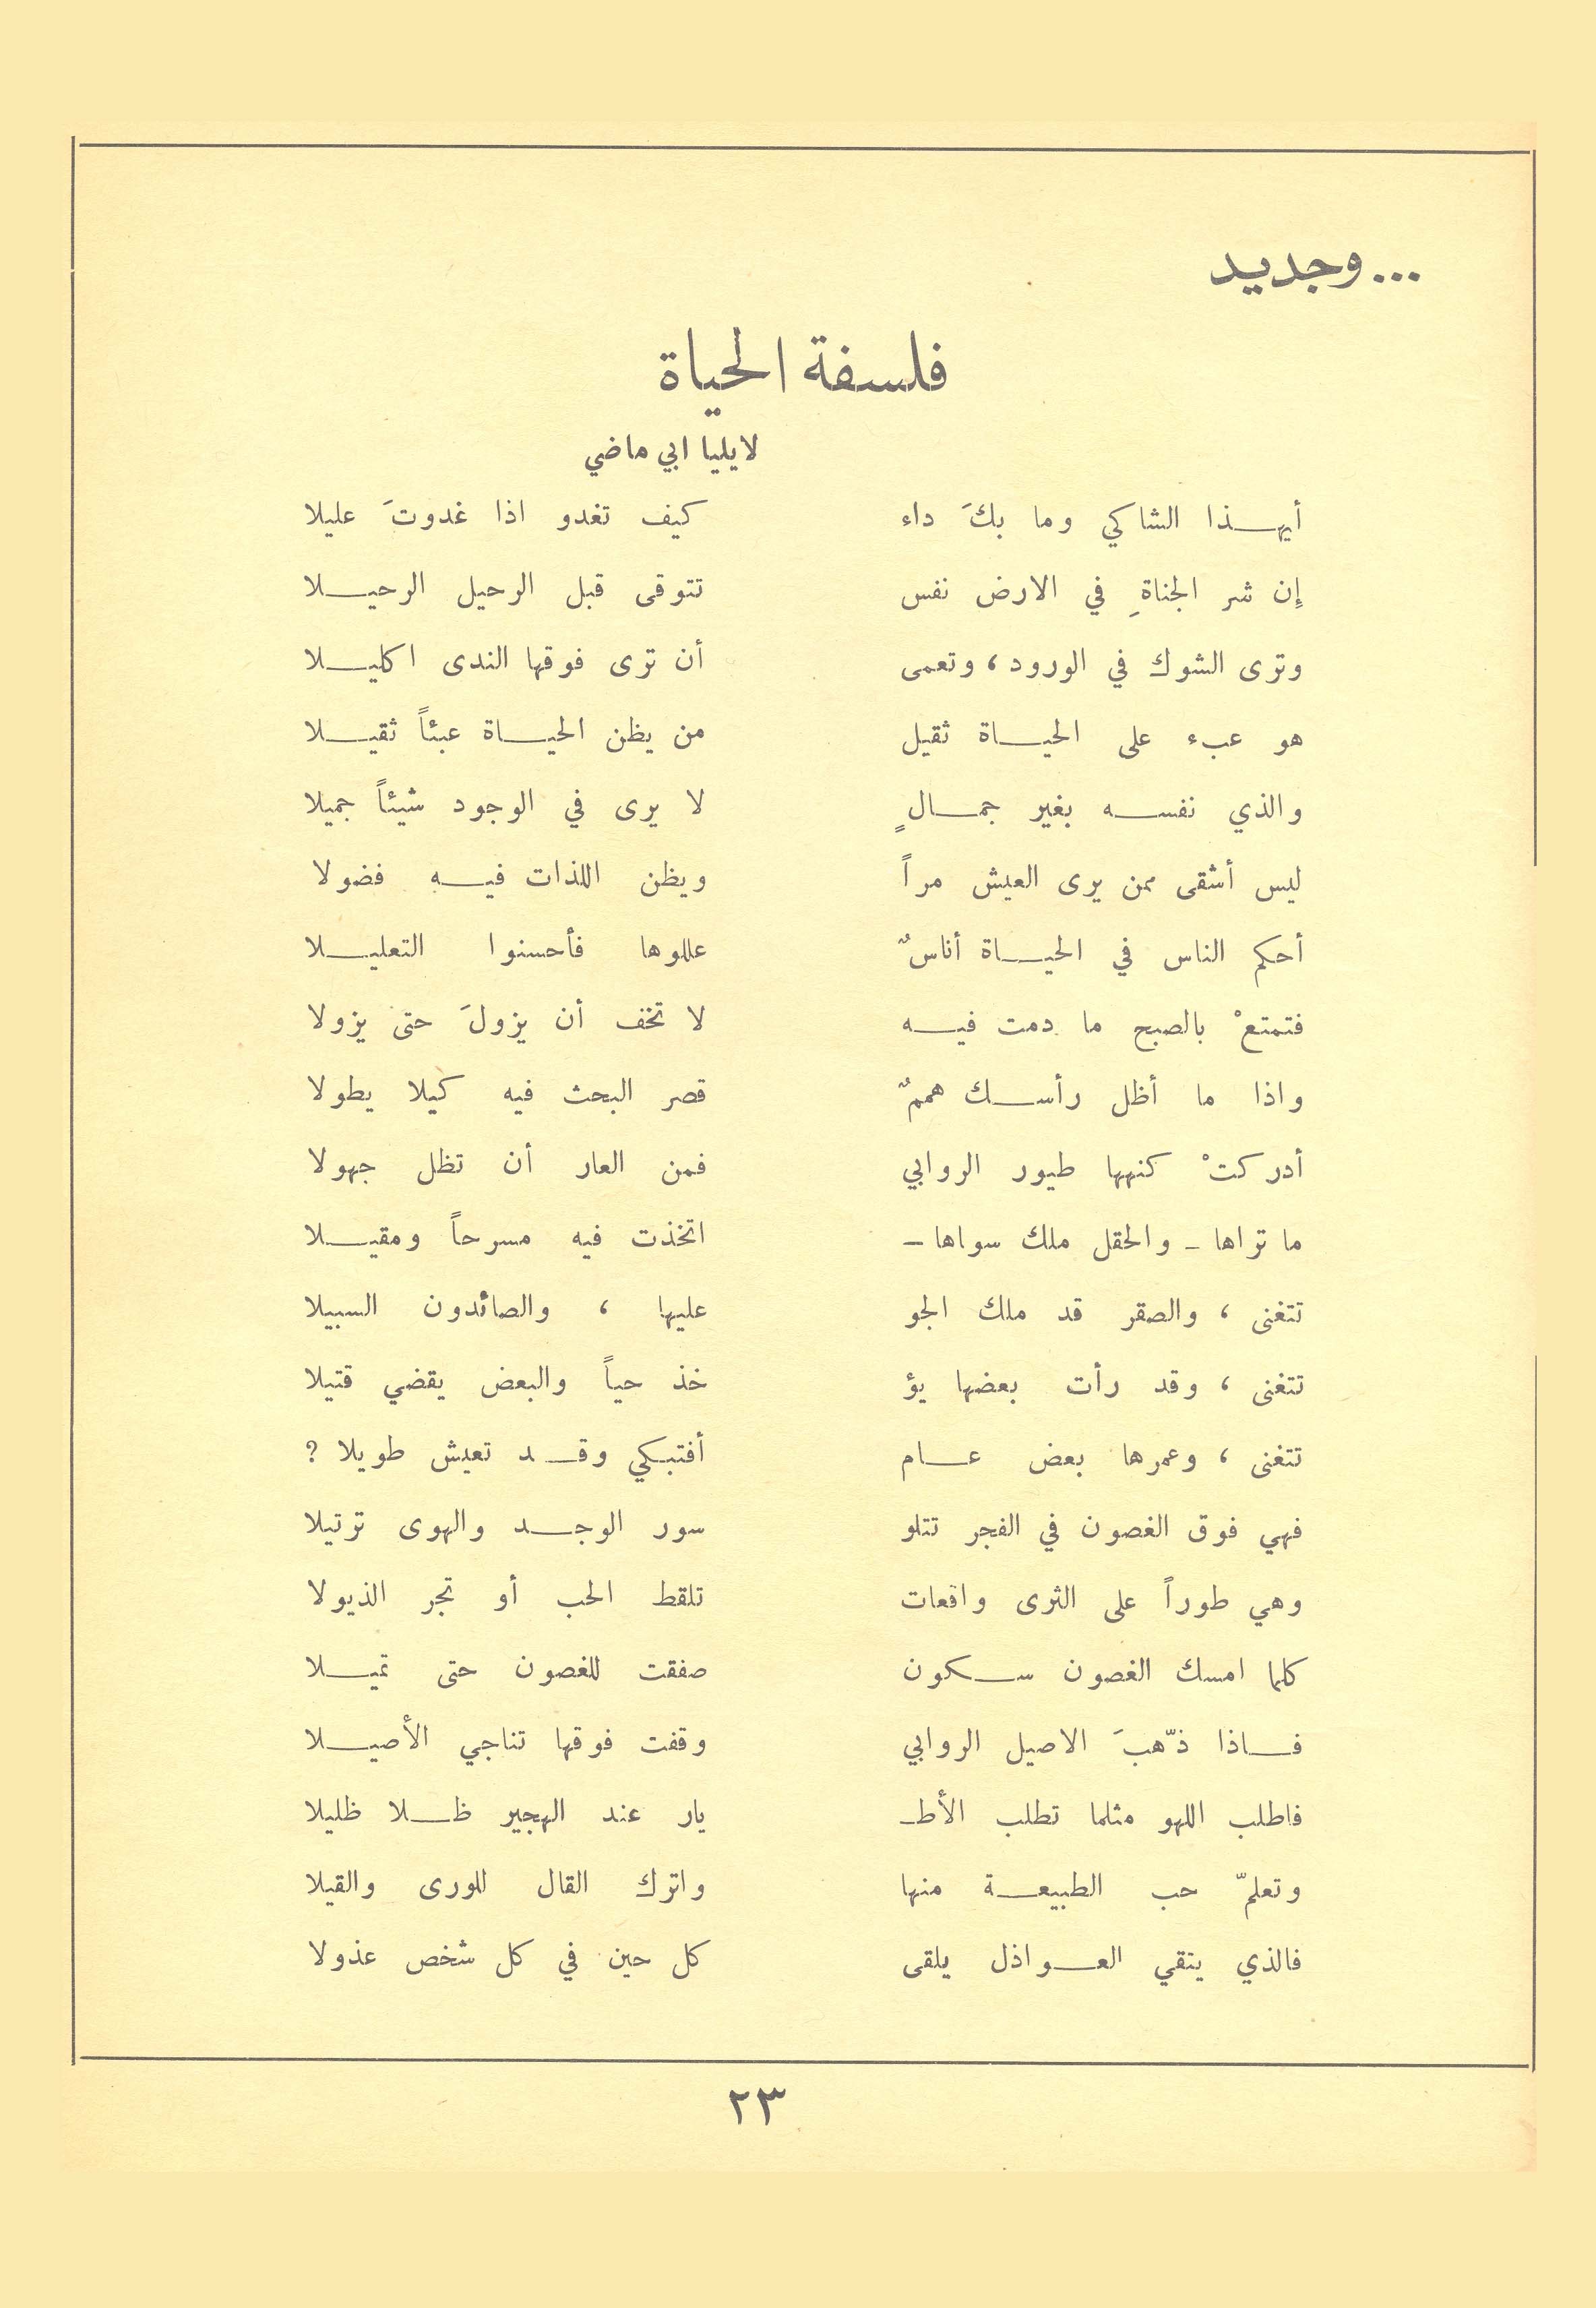 ... وجديد
فلسفة الحياة
لايليا ابي ماضي
أيهذا الشاكي وما بكَ داء كيف تغدو اذا غدوتَ عليلا
إن شر الجناةِ في الارض نفس تتوقى قبل الرحيل الرحيلا
وترى الشوك في الورود ، وتعمى أن ترى فوقها الندى اكليلا
هو عبء على الحياة ثقيل من يظن الحياة عبئاً ثقيلا
والذي نفسه بغير جمالٍ لا يرى في الوجود شيئاً جميلا
ليس أشقى ممن يرى العيش مراً ويظن اللذات فيه فضولا
أحكم الناس في الحياة أناسٌ عللوها فأحسنوا التعليلا
فتمتعْ بالصبح ما دمت فيه لا تخف أن يزولَ حتى يزولا
واذا ما أظل رأسك هممٌ قصر البحث فيه كيلا يطولا
أدركتْ كنهها طيور الروابي فمن العار أن تظل جهولا
ما تراها - والحقل ملك سواها - اتخذت فيه مسرحاً ومقيلا
تتغنى ، والصقر قد ملك الجو عليها ، والصائدون السبيلا
تتغنى ، وقد رأت بعضها يؤ خذ حياً والبعض يقضي قتيلا
تتغنى ، وعمرها بعض عام أفتبكي وقد تعيش طويلا ?
فهي فوق الغصون في الفجر تتلو سور الوجد والهوى ترتيلا
وهي طوراً على الثرى واقعات تلقط الحب أو تجر الذيولا
كلما امسك الغصون سكون صفقت للغصون حتى تميلا
فاذا ذهّبَ الاصيل الروابي وقفت فوقها تناجي الأصيلا
فاطلب اللهو مثلما تطلب الأطـ يار عند الهجير ظلا ظليلا
وتعلمّ حب الطبيعة منها واترك القال للورى والقيلا
فالذي يتقي العواذل يلقى كل حين في كل شخص عذولا
٢٣